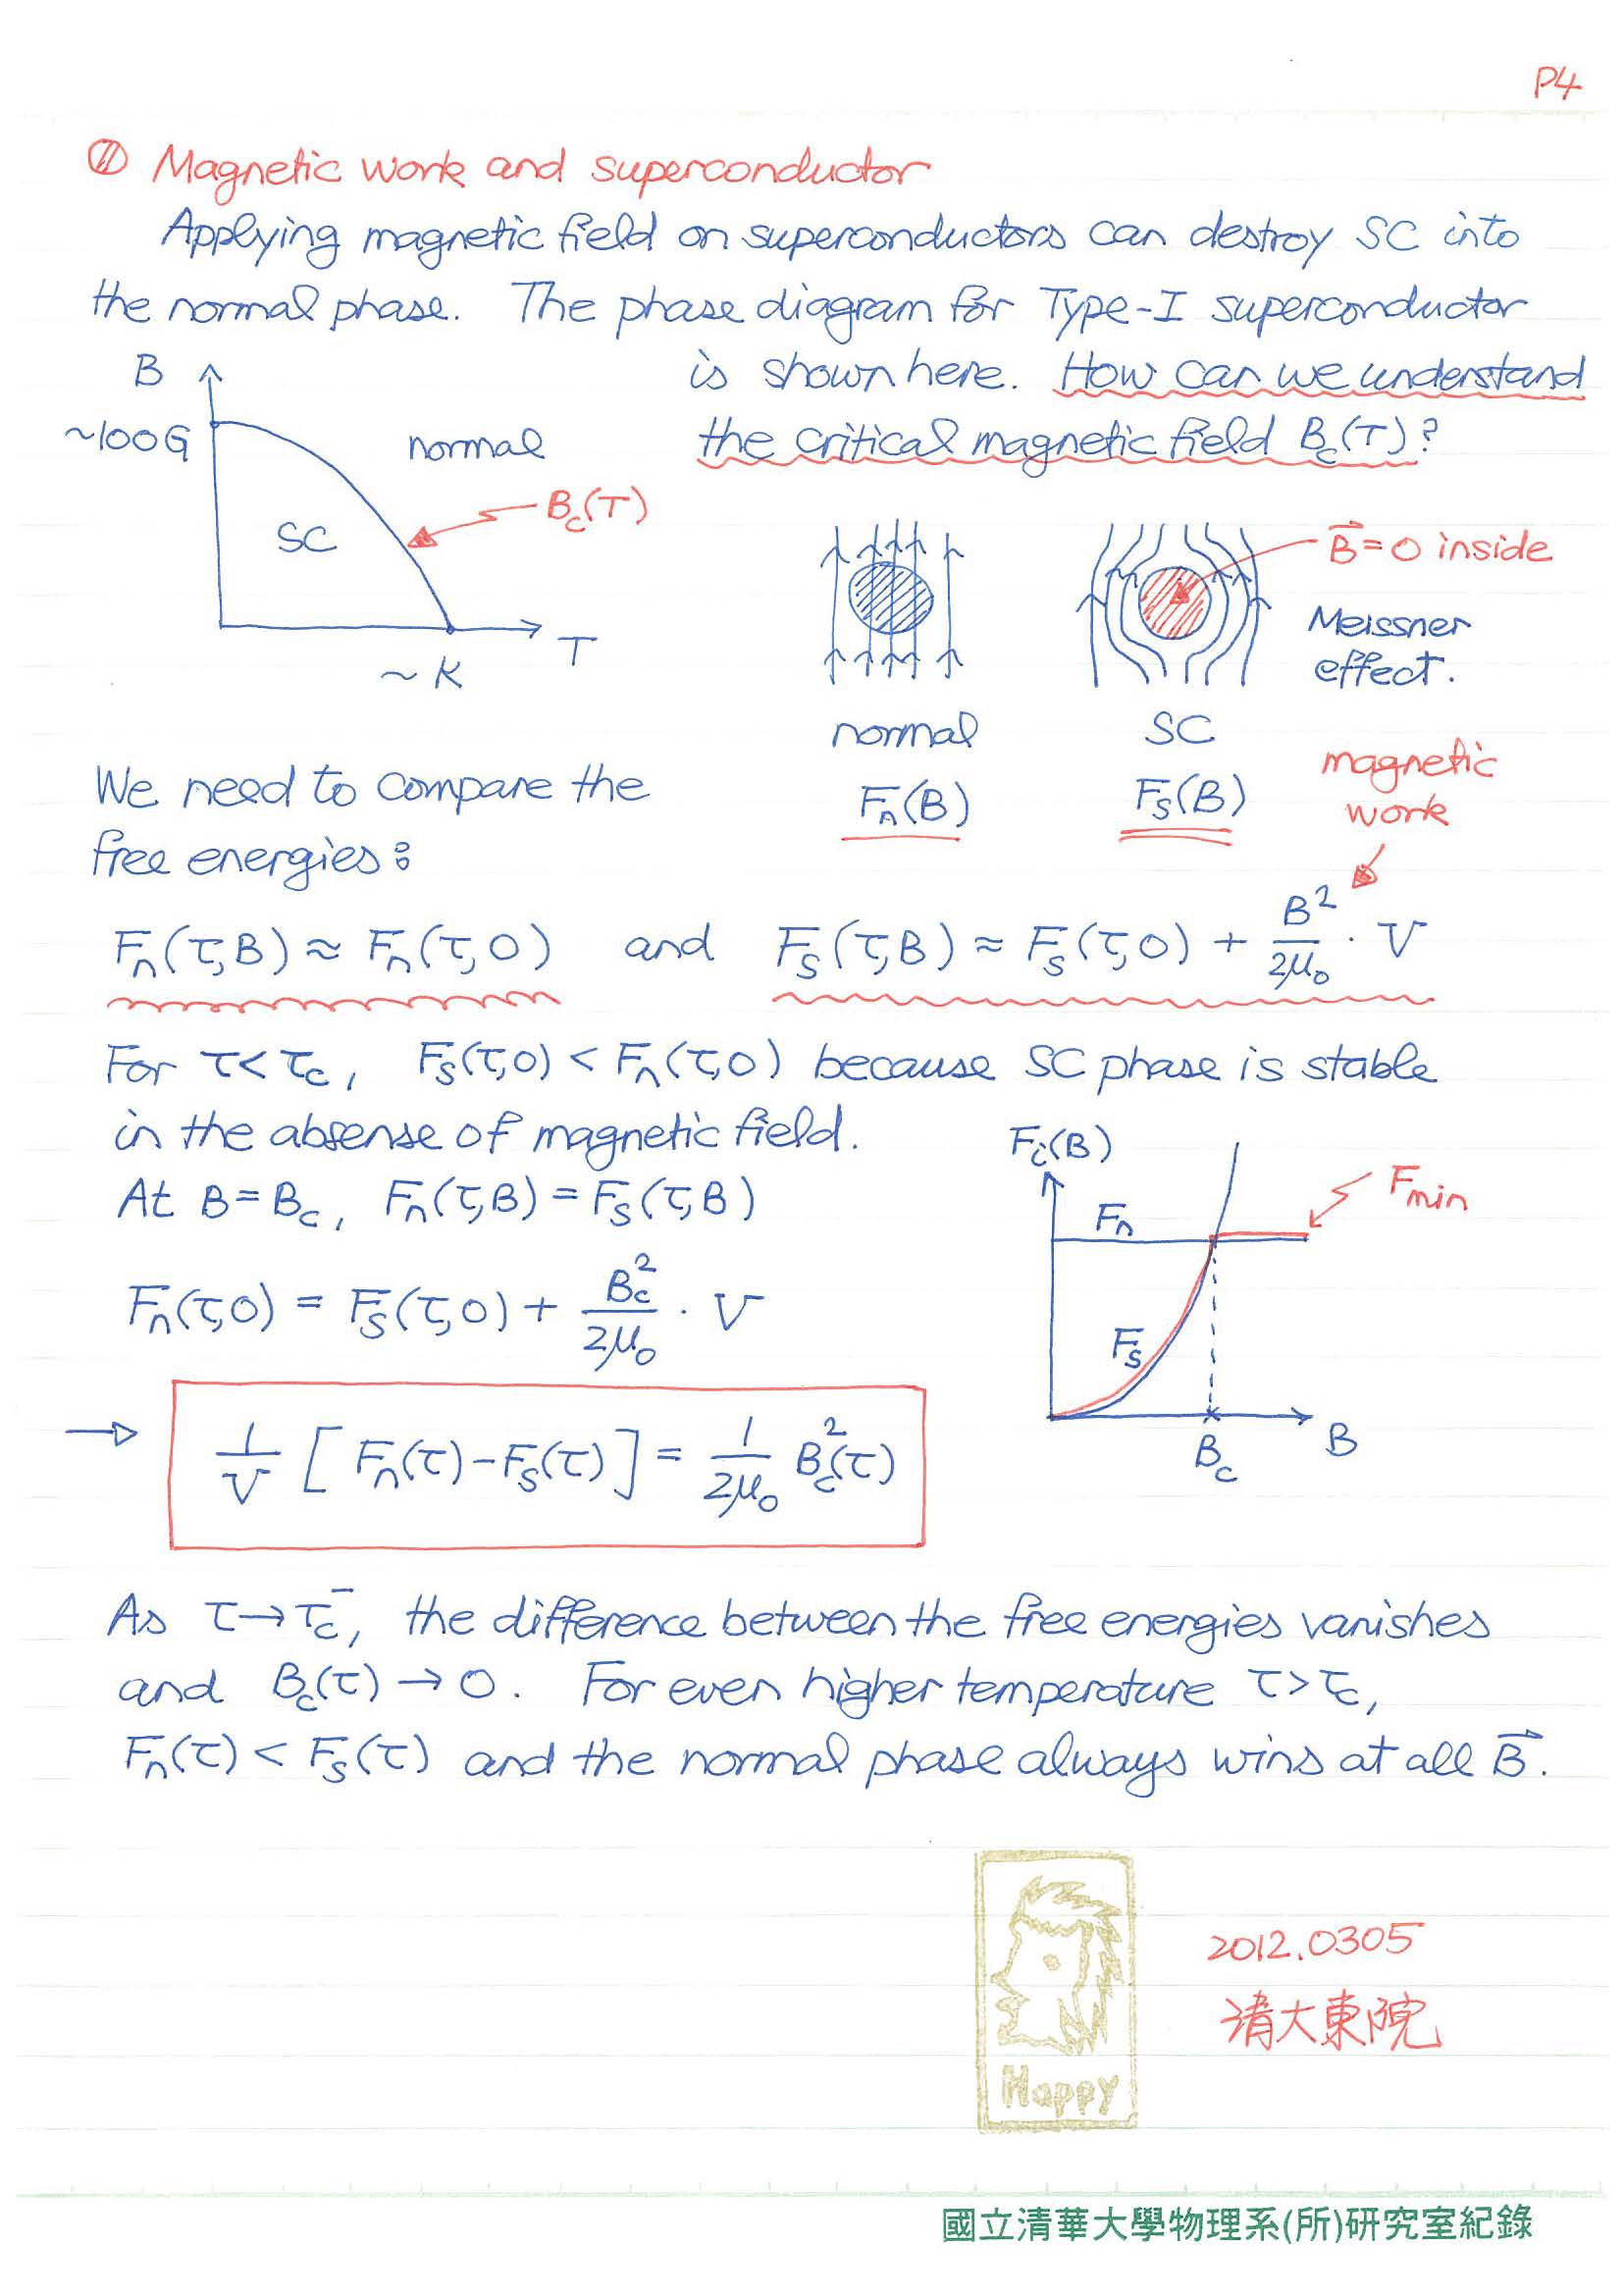 P4
Magnetic work and superconductor
Applying magnetic field on superconductors can destroy SC into
the normal phase. The phase diagram for Type-I superconductor
is shown here. How can we understand
the critical magnetic field Bc(T)?
B
~100G
normal
Bc(T)
SC
T
~ K
B⃗=0 inside
Meissner
effect.
normal
SC
Fn(B)
Fs(B)
magnetic
work
We need to compare the
free energies:
Fn(τ,B) ≈ Fn(τ,0) and Fs(τ,B) ≈ Fs(τ,0) + B²/2μ₀ · V
For τ<τc, Fs(τ,0) < Fn(τ,0) because SC phase is stable
in the absense of magnetic field.
At B=Bc, Fn(τ,B) = Fs(τ,B)
Fn(τ,0) = Fs(τ,0) + Bc²/2μ₀ · V
Fi(B)
Fn
Fmin
Fs
Bc
B
→ 1/V [Fn(τ)-Fs(τ)] = 1/2μ₀ Bc²(τ)
As τ→τc⁻, the difference between the free energies vanishes
and Bc(τ) → 0. For even higher temperature τ>τc,
Fn(τ) < Fs(τ) and the normal phase always wins at all B⃗.
Happy
2012.0305
清大東院
國立清華大學物理系(所)研究室紀錄